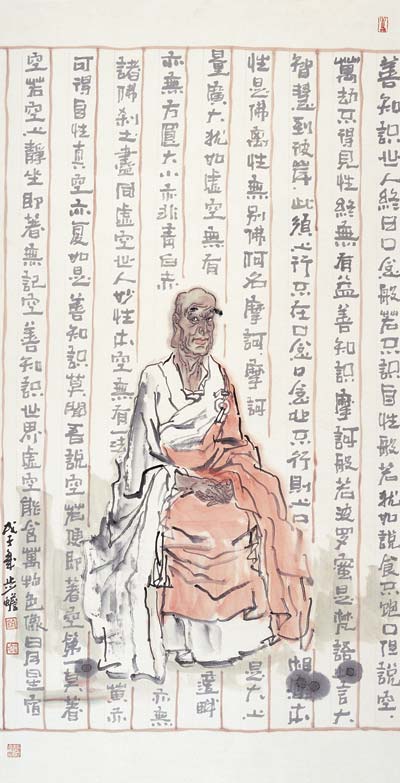 善知識世人終日口念般若不識自性般若猶如說食不飽口但說空
萬劫不得見性終無有益善知識摩訶般若波羅蜜是梵語此言大
智慧到彼岸此須心行不在口念口念心不行則心口 相 本
性是佛離性無別佛何名摩訶摩訶 是大心
量廣大猶如虛空無有 邊畔
亦無方圓大小亦非青白赤 亦無
諸佛剎土盡同虛空世人妙性本空無有一法 黃亦
可得自性真空亦復如是善知識莫聞吾說空若便即著空第一莫著
空若空心靜坐即著無記空善知識世界虛空能含萬物色像日月星宿
戊子 步蟾